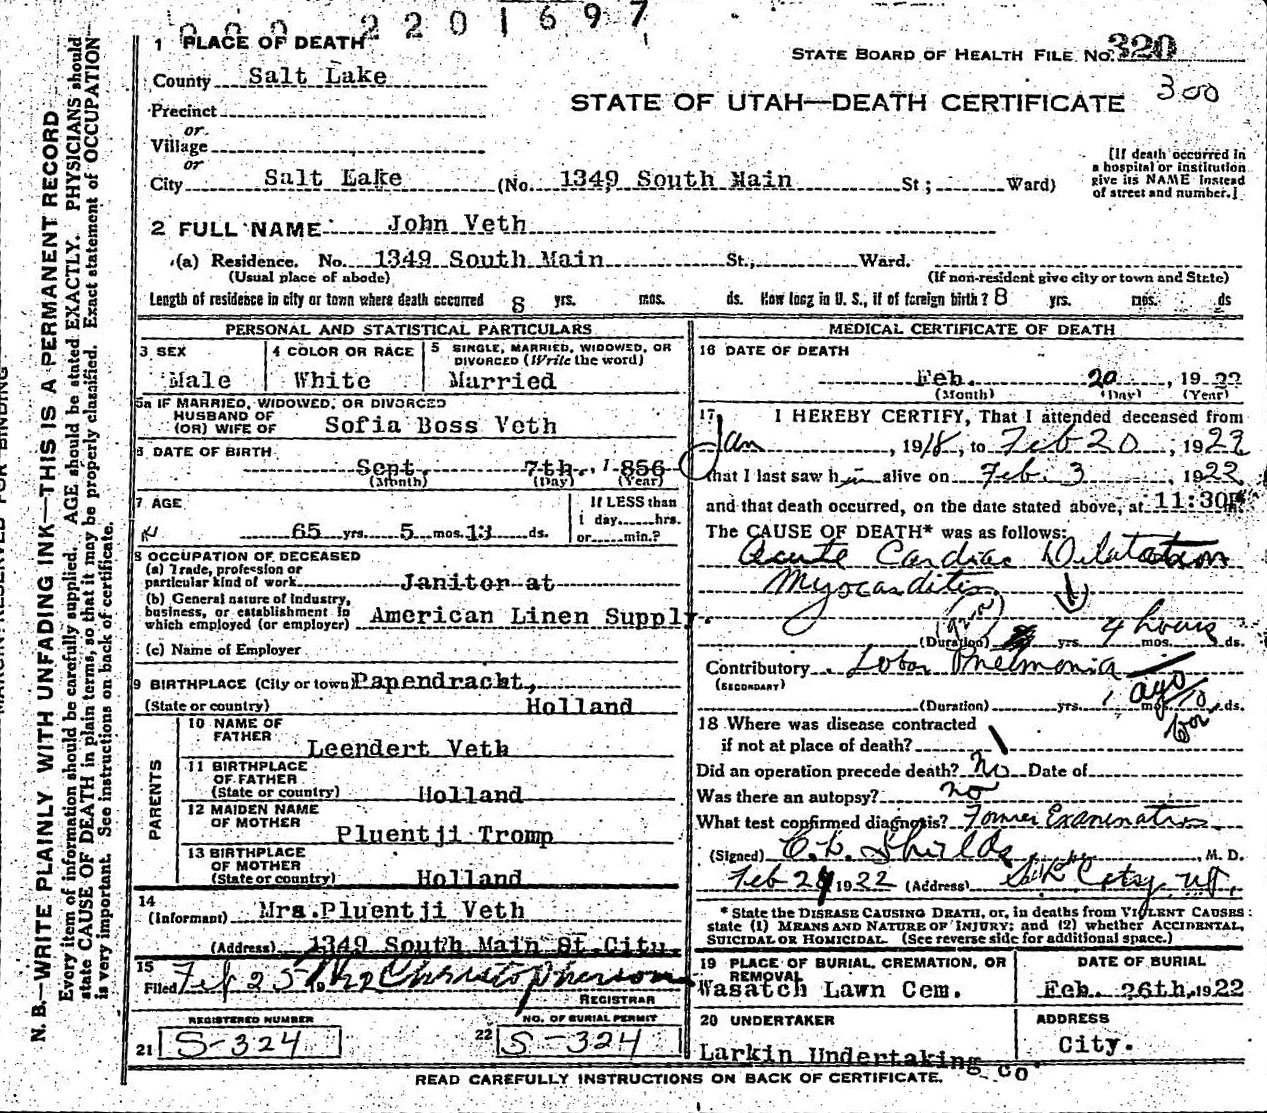 000 2201697
1 PLACE OF DEATH
STATE BOARD OF HEALTH FILE NO. 320
County Salt Lake
STATE OF UTAH—DEATH CERTIFICATE 300
Precinct
or
Village
or
City Salt Lake (No. 1349 South Main St; Ward)
[If death occurred in
a hospital or institution
give its NAME instead
of street and number.]
2 FULL NAME John Veth
(a) Residence. No. 1349 South Main St., Ward.
(Usual place of abode) (If non-resident give city or town and State)
Length of residence in city or town where death occurred 8 yrs. mos. ds. How long in U. S., if of foreign birth? 8 yrs. mos. ds
PERSONAL AND STATISTICAL PARTICULARS
3 SEX
Male
4 COLOR OR RACE
White
5 SINGLE, MARRIED, WIDOWED, OR
DIVORCED (Write the word)
Married
5a IF MARRIED, WIDOWED, OR DIVORCED
HUSBAND OF
(OR) WIFE OF Sofia Boss Veth
6 DATE OF BIRTH
Sept. 7th. 1856
(Month) (Day) (Year)
7 AGE
65 yrs. 5 mos. 13 ds.
If LESS than
1 day......hrs.
or......min.?
8 OCCUPATION OF DECEASED
(a) Trade, profession or
particular kind of work Janitor at
(b) General nature of industry,
business, or establishment in
which employed (or employer) American Linen Supply.
(c) Name of Employer
9 BIRTHPLACE (City or town) Papendracht,
(State or country) Holland
PARENTS
10 NAME OF
FATHER
Leendert Veth
11 BIRTHPLACE
OF FATHER
(State or country) Holland
12 MAIDEN NAME
OF MOTHER
Pluentji Tromp
13 BIRTHPLACE
OF MOTHER
(State or country) Holland
14
(Informant) Mrs.Pluentji Veth
(Address) 1349 South Main St.City.
15
Filed Feb 25 1922 Christopherson
REGISTRAR
REGISTERED NUMBER
21 S-324
NO. OF BURIAL PERMIT
22 S-324
MEDICAL CERTIFICATE OF DEATH
16 DATE OF DEATH
Feb. 20, 1922
(Month) (Day) (Year)
17 I HEREBY CERTIFY, That I attended deceased from
Jan, 1918, to Feb 20, 1922
that I last saw him alive on Feb. 3 1922
and that death occurred, on the date stated above, at 11:30P
The CAUSE OF DEATH* was as follows:
Acute Cardiac Dilatation
Myocarditis
(Duration) yrs. 4 hours mos. ds.
Contributory Lobar Pneumonia
(SECONDARY)
ago
(Duration) yrs. mos. ds.
18 Where was disease contracted
if not at place of death?
Did an operation precede death? No Date of
Was there an autopsy? no
What test confirmed diagnosis? Former Examination
(Signed) C. L. Shields, M. D.
Feb 24 1922 (Address) S.L. City Ut.
* State the DISEASE CAUSING DEATH, or, in deaths from VIOLENT CAUSES:
state (1) MEANS AND NATURE OF INJURY; and (2) whether ACCIDENTAL,
SUICIDAL OR HOMICIDAL. (See reverse side for additional space.)
19 PLACE OF BURIAL, CREMATION, OR
REMOVAL
Wasatch Lawn Cem.
DATE OF BURIAL
Feb. 26th, 1922
20 UNDERTAKER
Larkin Undertaking Co
ADDRESS
City.
READ CAREFULLY INSTRUCTIONS ON BACK OF CERTIFICATE.
MARGIN RESERVED FOR BINDING
N. B.—WRITE PLAINLY WITH UNFADING INK—THIS IS A PERMANENT RECORD
Every item of information should be carefully supplied. AGE should be stated EXACTLY. PHYSICIANS should
state CAUSE OF DEATH in plain terms, so that it may be properly classified. Exact statement of OCCUPATION
is very important. See instructions on back of certificate.